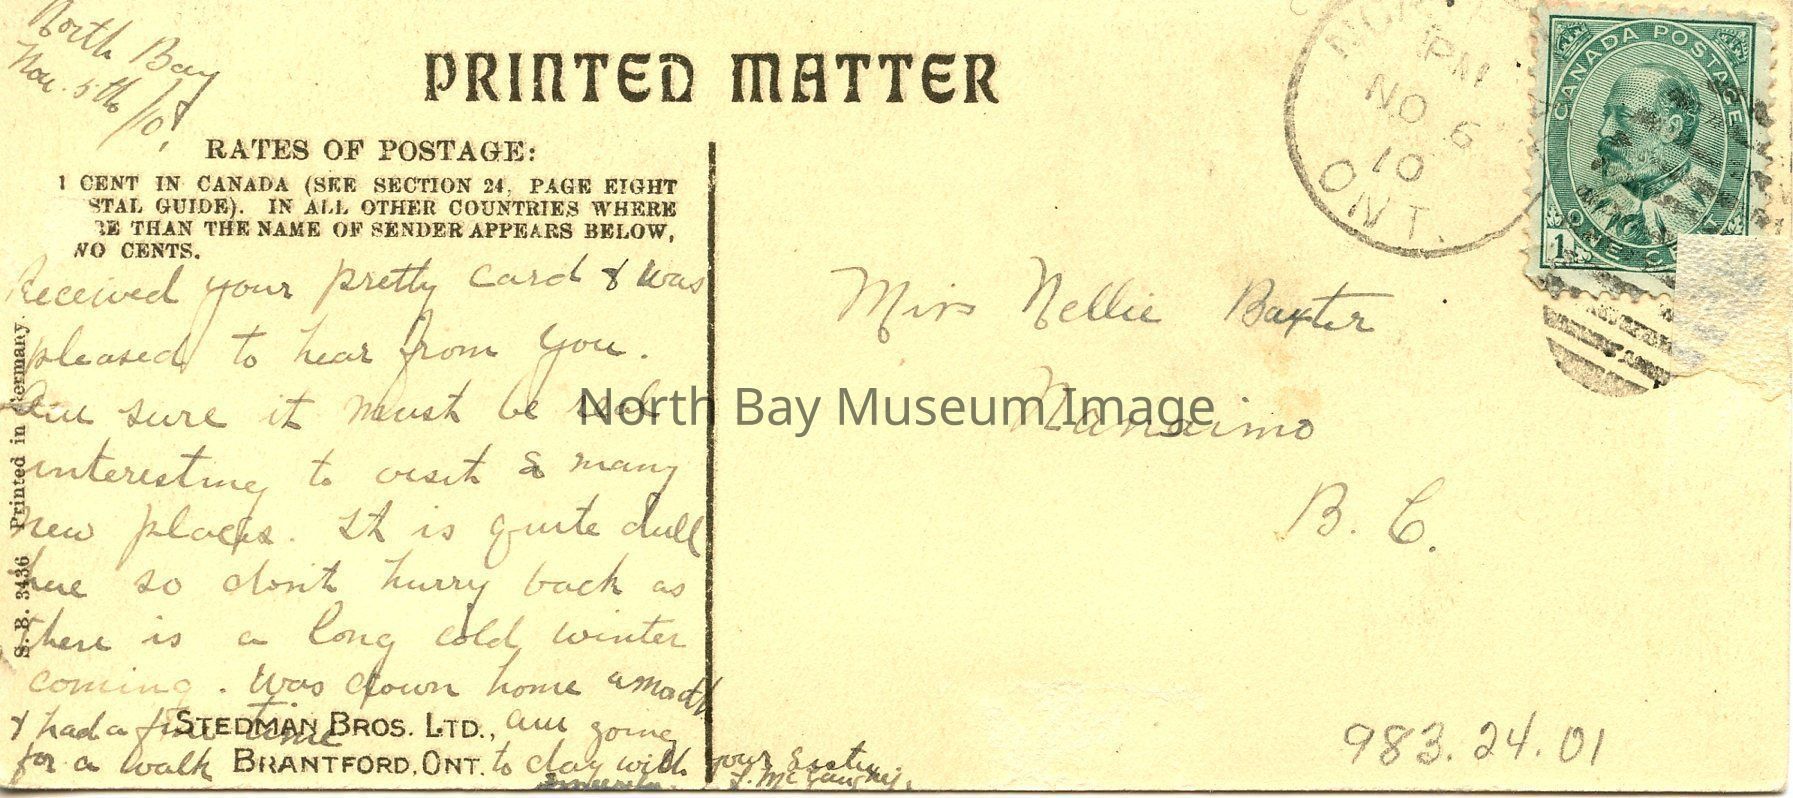 North Bay
Nov. 5th /10
PRINTED MATTER
RATES OF POSTAGE:
1 CENT IN CANADA (SEE SECTION 24, PAGE EIGHT
STAL GUIDE). IN ALL OTHER COUNTRIES WHERE
RE THAN THE NAME OF SENDER APPEARS BELOW,
WO CENTS.
Received your pretty card & was
pleased to hear from you.
Am sure it must be real
interesting to visit so many
new places. It is quite dull
here so don't hurry back as
there is a long cold winter
coming. Was down home a month
& had a fine time am going
for a walk to day with your sister
sincerely.
STEDMAN BROS. LTD.,
BRANTFORD, ONT.
S. B. 3436 Printed in Germany.
PM
NO 6
10
ONT.
CANADA POSTAGE
1
ONE C
Miss Nellie Baxter
Nanaimo
B. C.
983.24.01
North Bay Museum Image